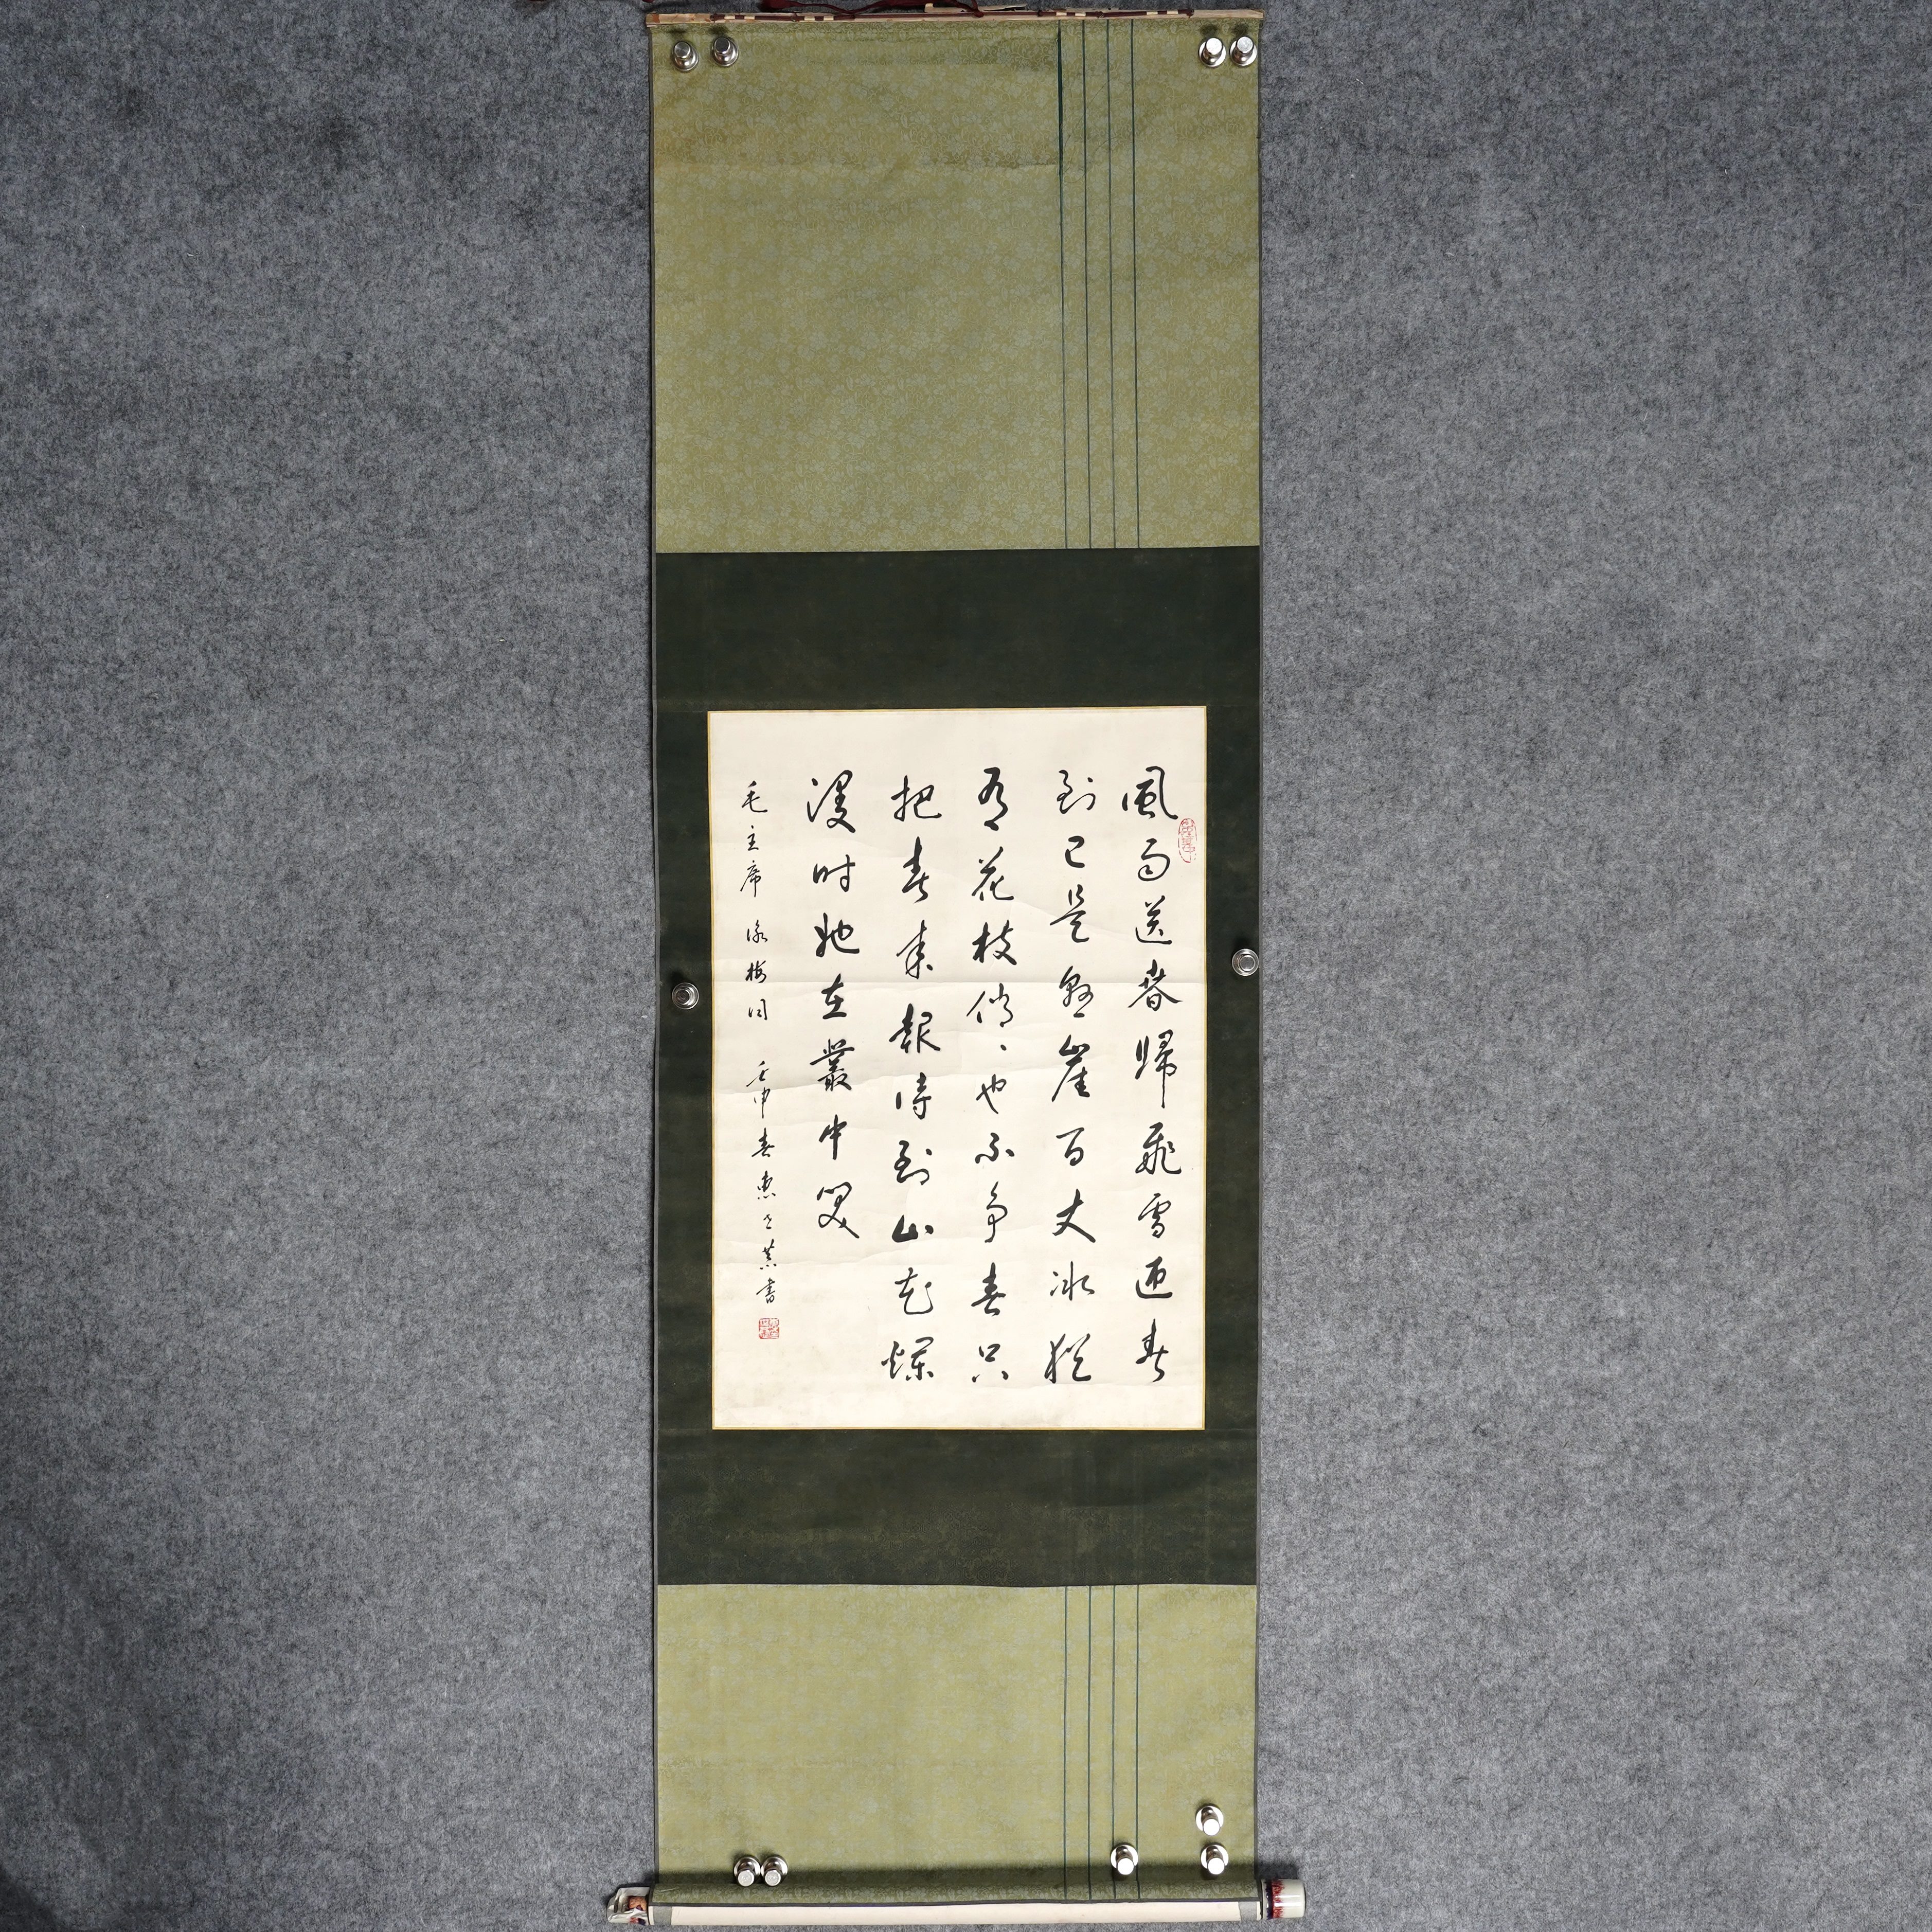 風雨送春歸飛雪迎春
到已是懸崖百丈冰猶
有花枝俏、也不争春只
把春来報待到山花爛
漫时她在叢中笑
毛主席 詠梅词 壬申春惠書